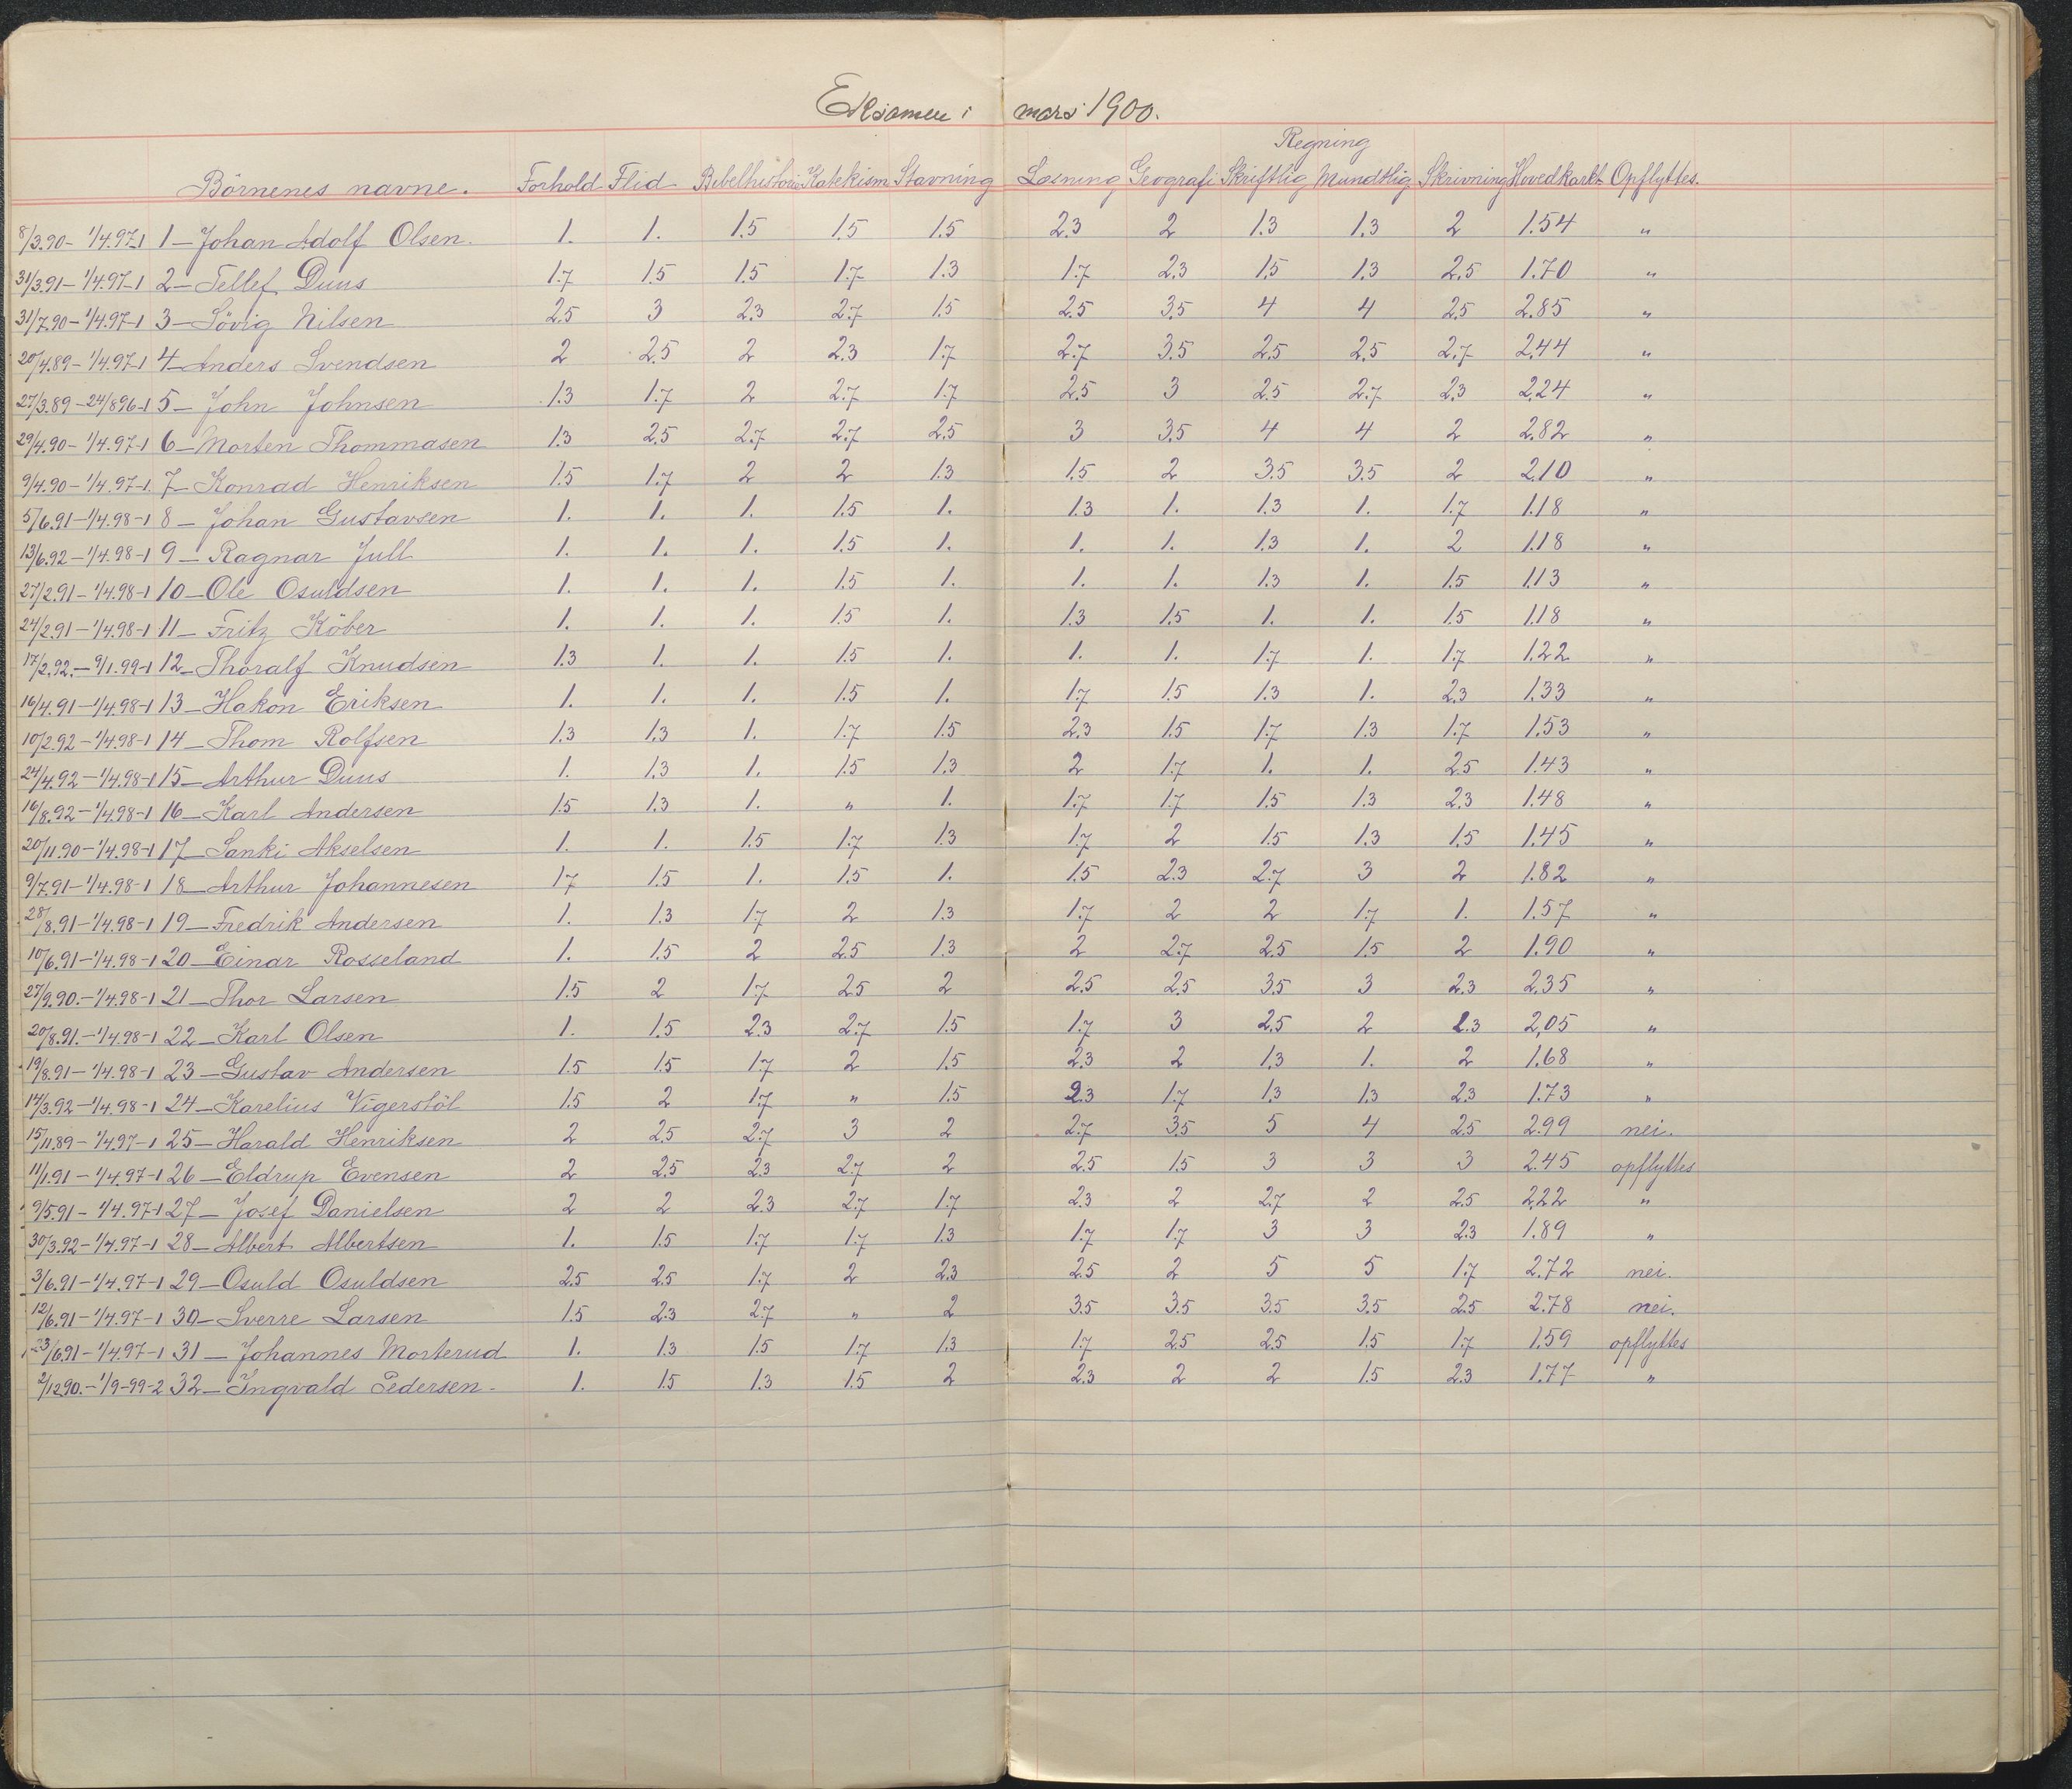 Eksamen i mars 1900.
Regning
Börnenes navne. Forhold Flid Bibelhistorie Katekism Stavning Læsning Geografi Skriftlig Mundtlig Skrivning Hovedkarkt. Opflyttes.
8/3.90 - 1/4.97-1 1 - Johan Adolf Olsen. 1. 1. 1.5 1.5 1.5 2.3 2 1.3 1.3 2 1.54 "
31/3.91 - 1/4.97-1 2 - Tellef Duus 1.7 1.5 1.5 1.7 1.3 1.7 2.3 1.5 1.3 2.5 1.70 "
31/7.90 - 1/4.97-1 3 - Lövig Nilsen 2.5 3 2.3 2.7 1.5 2.5 3.5 4 4 2.5 2.85 "
20/4.89 - 1/4.97-1 4 - Anders Svendsen 2 2.5 2 2.3 1.7 2.7 3.5 2.5 2.5 2.7 2.44 "
27/3.89 - 24/8 96-1 5 - John Johnsen 1.3 1.7 2 2.7 1.7 2.5 3 2.5 2.7 2.3 2.24 "
29/4.90 - 1/4.97-1 6 - Morten Thommasen 1.3 2.5 2.7 2.7 2.5 3 3.5 4 4 2 2.82 "
9/4.90 - 1/4.97-1. 7 - Konrad Henriksen 1.5 1.7 2 2 1.3 1.5 2 3.5 3.5 2 2.10 "
5/6.91 - 1/4.98-1 8 - Johan Gustavsen 1. 1. 1. 1.5 1. 1.3 1. 1.3 1. 1.7 1.18 "
13/6.92 - 1/4.98-1 9 - Ragnar Jull 1. 1. 1. 1.5 1. 1. 1. 1.3 1. 2 1.18 "
27/2.91 - 1/4.98-1 10 - Ole Osuldsen 1. 1. 1. 1.5 1. 1. 1. 1.3 1. 1.5 1.13 "
24/2.91 - 1/4.98-1 11 - Fritz Köber 1. 1. 1. 1.5 1. 1.3 1.5 1. 1. 1.5 1.18 "
17/2.92. - 9/1.99-1 12 - Thoralf Knudsen 1.3 1. 1. 1.5 1. 1. 1. 1.7 1. 1.7 1.22 "
16/4.91 - 1/4.98-1 13 - Hakon Eriksen 1. 1. 1. 1.5 1. 1.7 1.5 1.3 1. 2.3 1.33 "
10/2.92 - 1/4.98-1 14 - Thom Rolfsen 1.3 1.3 1. 1.7 1.5 2.3 1.5 1.7 1.3 1.7 1.53 "
24/4.92 - 1/4.98-1 15 - Arthur Duus 1. 1.3 1. 1.5 1.3 2 1.7 1. 1. 2.5 1.43 "
16/8.92 - 1/4.98-1 16 - Karl Andersen 1.5 1.3 1. " 1. 1.7 1.7 1.5 1.3 2.3 1.48 "
20/11.90 - 1/4.98-1 17 - Sanki Akselsen 1. 1. 1.5 1.7 1.3 1.7 2 1.5 1.3 1.5 1.45 "
9/7.91 - 1/4.98-1 18 - Arthur Johannesen 1.7 1.5 1. 1.5 1. 1.5 2.3 2.7 3 2 1.82 "
28/8.91 - 1/4.98-1 19 - Fredrik Andersen 1. 1.3 1.7 2 1.3 1.7 2 2 1.7 1. 1.57 "
10/6.91 - 1/4.98-1 20 - Einar Rosseland 1. 1.5 2 2.5 1.3 2 2.7 2.5 1.5 2 1.90 "
27/9.90. - 1/4.98-1 21 - Thor Larsen 1.5 2 1.7 2.5 2 2.5 2.5 3.5 3 2.3 2.35 "
20/8.91. - 1/4.98-1 22 - Karl Olsen 1. 1.5 2.3 2.7 1.5 1.7 3 2.5 2 2.3 2.05 "
19/8.91 - 1/4.98-1 23 - Gustav Andersen 1.5 1.5 1.7 2 1.5 2.3 2 1.3 1. 2 1.68 "
14/3.92 - 1/4.98-1 24 - Karelius Vigerstöl 1.5 2 1.7 " 1.5 2.3 1.7 1.3 1.3 2.3 1.73 "
15/11.89 - 1/4.97-1 25 - Harald Henriksen 2 2.5 2.7 3 2 2.7 3.5 5 4 2.5 2.99 nei.
11/1.91 - 1/4.97-1 26 - Eldrup Evensen 2 2.5 2.3 2.7 2 2.5 1.5 3 3 3 2.45 opflyttes
9/5.91 - 1/4.97-1 27 - Josef Danielsen 2 2 2.3 2.7 1.7 2.3 2 2.7 2 2.5 2.22 "
30/3.92 - 1/4.97-1 28 - Albert Albertsen 1. 1.5 1.7 1.7 1.3 1.7 1.7 3 3 2.3 1.89 "
3/6.91 - 1/4.97-1 29 - Osuld Osuldsen 2.5 2.5 1.7 2 2.3 2.5 2 5 5 1.7 2.72 nei.
12/6.91 - 1/4.97-1 30 - Sverre Larsen 1.5 2.3 2.7 " 2 3.5 3.5 3.5 3.5 2.5 2.78 nei.
23/6.91 - 1/4.97-1 31 - Johannes Morterud 1. 1.3 1.5 1.7 1.3 1.7 2.5 2.5 1.5 1.7 1.59 opflyttes
2/12 90. - 1/9-99-2 32 - Ingvald Pedersen - 1. 1.5 1.3 1.5 2 2.3 2 2 1.5 2.3 1.77 "